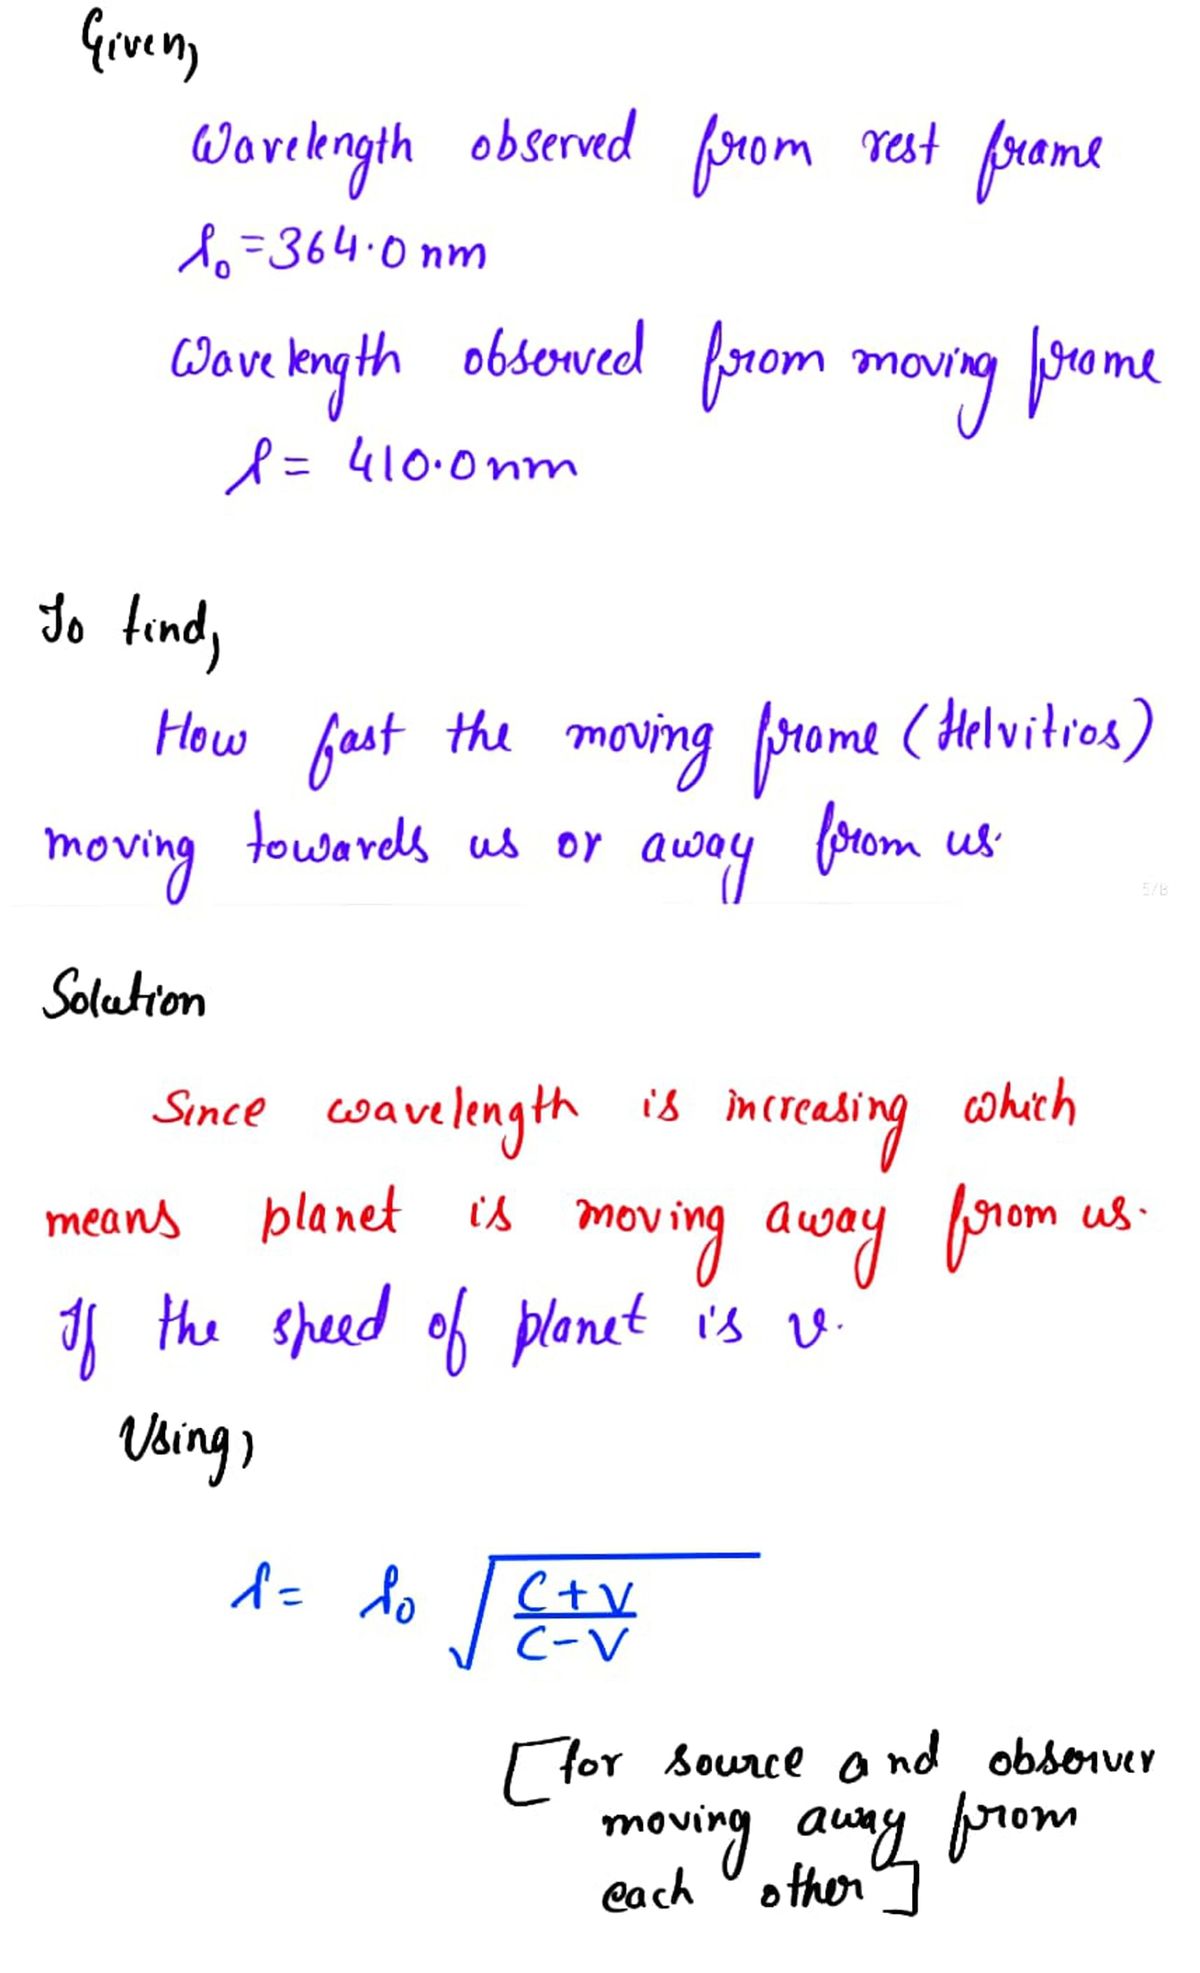 Given,
Wavelength observed from rest frame
λ₀ = 364.0 nm
Wavelength observed from moving frame
λ = 410.0 nm
To find,
How fast the moving frame (Helvitios)
moving towards us or away from us.
5/8
Solution
Since wavelength is increasing which
means planet is moving away from us.
If the speed of planet is v.
Using,
λ = λ₀ √((C+V)/(C-V))
[for source and observer
moving away from
each other]